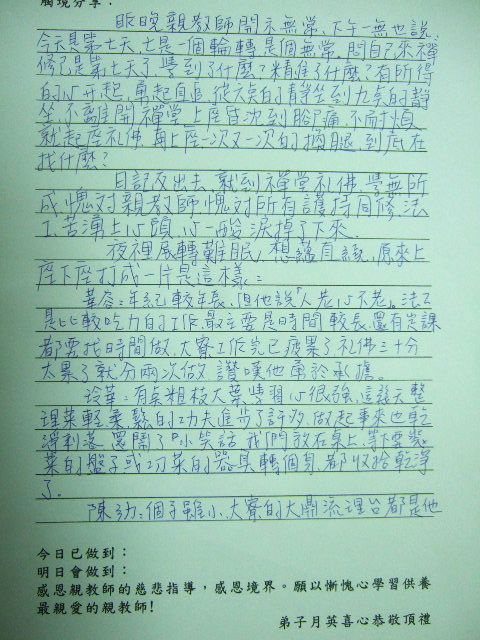 觸境分享：
昨晚親教師開示無常，下午一無也說，
今天是第七天，七是一個輪轉是個無常，問自己來禪
修已是第七天了，學到了什麼？精進了什麼？有所得
的心升起，勇起直追，從六点的靜坐到九点的靜
坐，不離開禪堂，上座昏沈到腳痛，不耐煩
就起座礼佛，再上座一次又一次的換腿，到底在
找什麼？
日記交出去，就到禪堂礼佛，學無所
成愧對親教師愧對所有護持同修，法
工，苦湧上心頭，心一酸淚掉了下來。
夜裡風轉難眠，想過直統，原來上
座下座打成一片是這樣：
華容：年紀較年長，但他說「人老心不老」，法工
是比較吃力的工作，最主要是時間較長，還有定課
都要找時間做，大寮工作完已疲累了，礼佛三十分
太累了就分兩次做，讚嘆他勇於承擔。
玲華：有点粗枝大葉，學習心很強，這幾天整
理菜輕柔鬆的功夫進步了許多，做起事來也乾
淨利落，還鬧了個小笑話，我們放在桌上，等下要裝
菜的盤子或切菜的器具轉個身都收拾乾淨
了。
陳幼：個子雖小，大寮的大鼎流理台都是他
今日已做到：
明日會做到：
感恩親教師的慈悲指導，感恩境界。願以慚愧心學習供養
最親愛的親教師！
弟子月英喜心恭敬頂禮